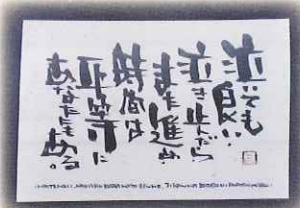 泣いても
良い
泣き止んだら
また進め
時間は
平等に
あなたにもある。